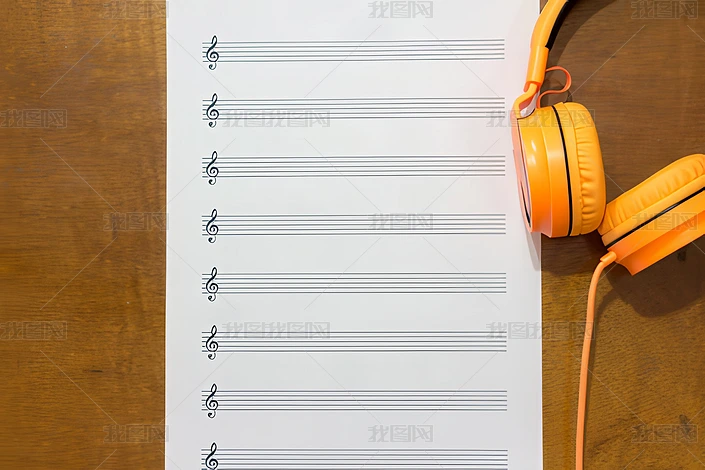 我图网
我图网
我图网
我图网
我图网
我图网
我图网
我图网
我图网
我图网
我图网
我图网
我图网
我图网